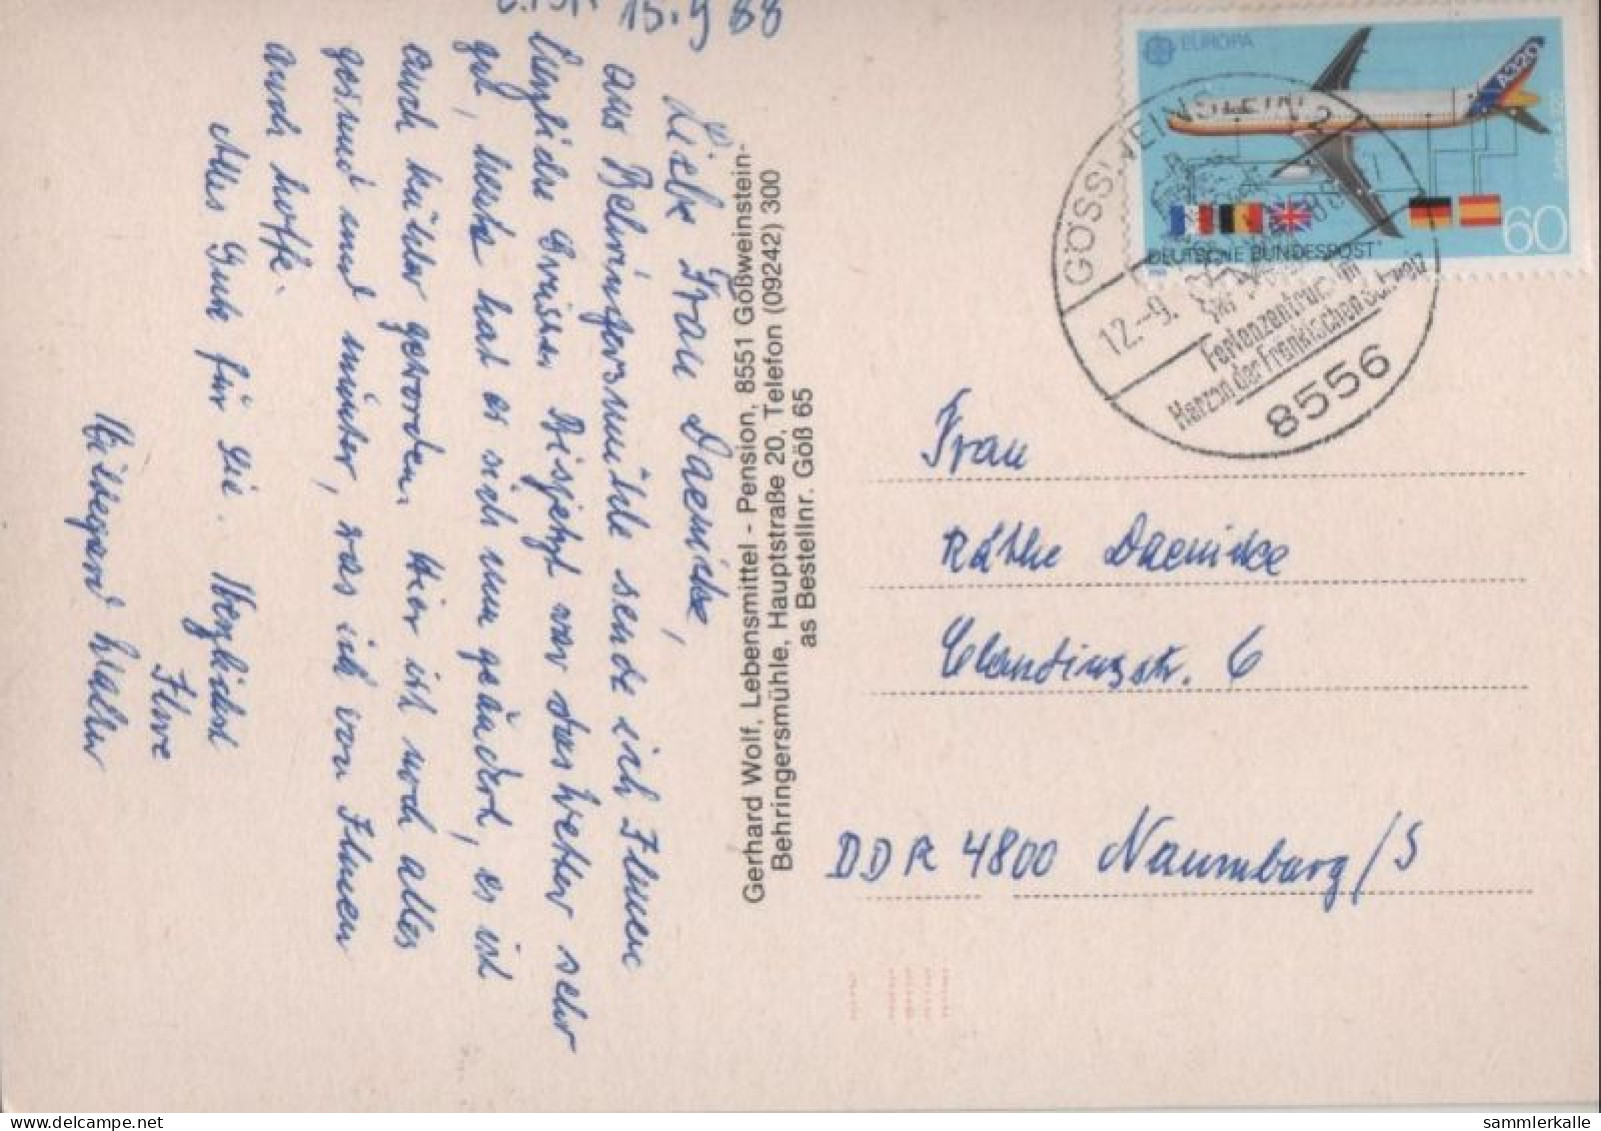 15.9 88
Liebe Frau Daenicke,
aus Behringersmühle sende ich Ihnen
herzliche Grüsse. Bis jetzt war das Wetter sehr
gut, heute hat es sich nun geändert, es ist
auch kühler geworden. Hier ist noch alles
gesund und munter, was ich von Ihnen
auch hoffe.
Alles Gute für Sie. Herzlichst
Ihre
Hildegard Walter
Gerhard Wolf, Lebensmittel - Pension, 8551 Gößweinstein-
Behringersmühle, Hauptstraße 20, Telefon (09242) 300
as Bestellnr. Göß 65
EUROPA
A320
DEUTSCHE BUNDESPOST
60
GÖSSWEINSTEIN 2
12.-9.
Ferienzentrum im
Herzen der Fränkischen Schweiz
8556
Frau
Käthe Daenicke
Claudiusstr. 6
DDR 4800 Naumburg/S
sammlerkalle